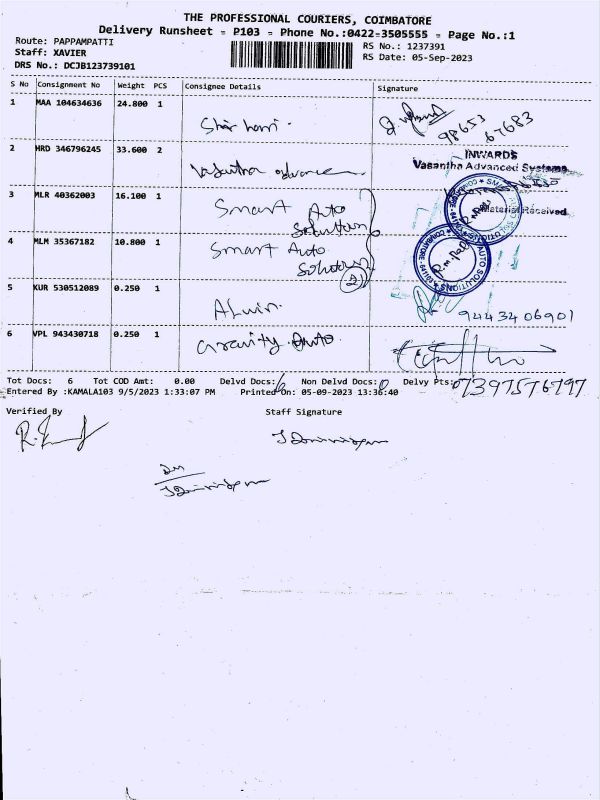 THE PROFESSIONAL COURIERS, COIMBATORE
Delivery Runsheet = P103 = Phone No.:0422-3505555 = Page No.:1
Route: PAPPAMPATTI
RS No.: 1237391
Staff: XAVIER
RS Date: 05-Sep-2023
DRS No.: DCJB123739101
S No Consignment No Weight PCS Consignee Details Signature
1 MAA 104634636 24.800 1
98653
67683
2 HRD 346796245 33.600 2 Vasantha advance
INWARDS
Vasantha Advanced Systems
Material Received
3 MLR 40362003 16.100 1 Smart Auto Solutions
4 MLM 35367182 10.800 1 Smart Auto Solutions
2
SMART AUTO SOLUTIONS * COIMBATORE
5 KUR 530512089 0.250 1 Alwin.
9443406901
6 VPL 943430718 0.250 1 Gravity Auto.
Tot Docs: 6 Tot COD Amt: 0.00 Delvd Docs: 6 Non Delvd Docs: 0 Delvy Pts:
07397576797
Entered By :KAMALA103 9/5/2023 1:33:07 PM Printed On: 05-09-2023 13:36:40
Verified By Staff Signature